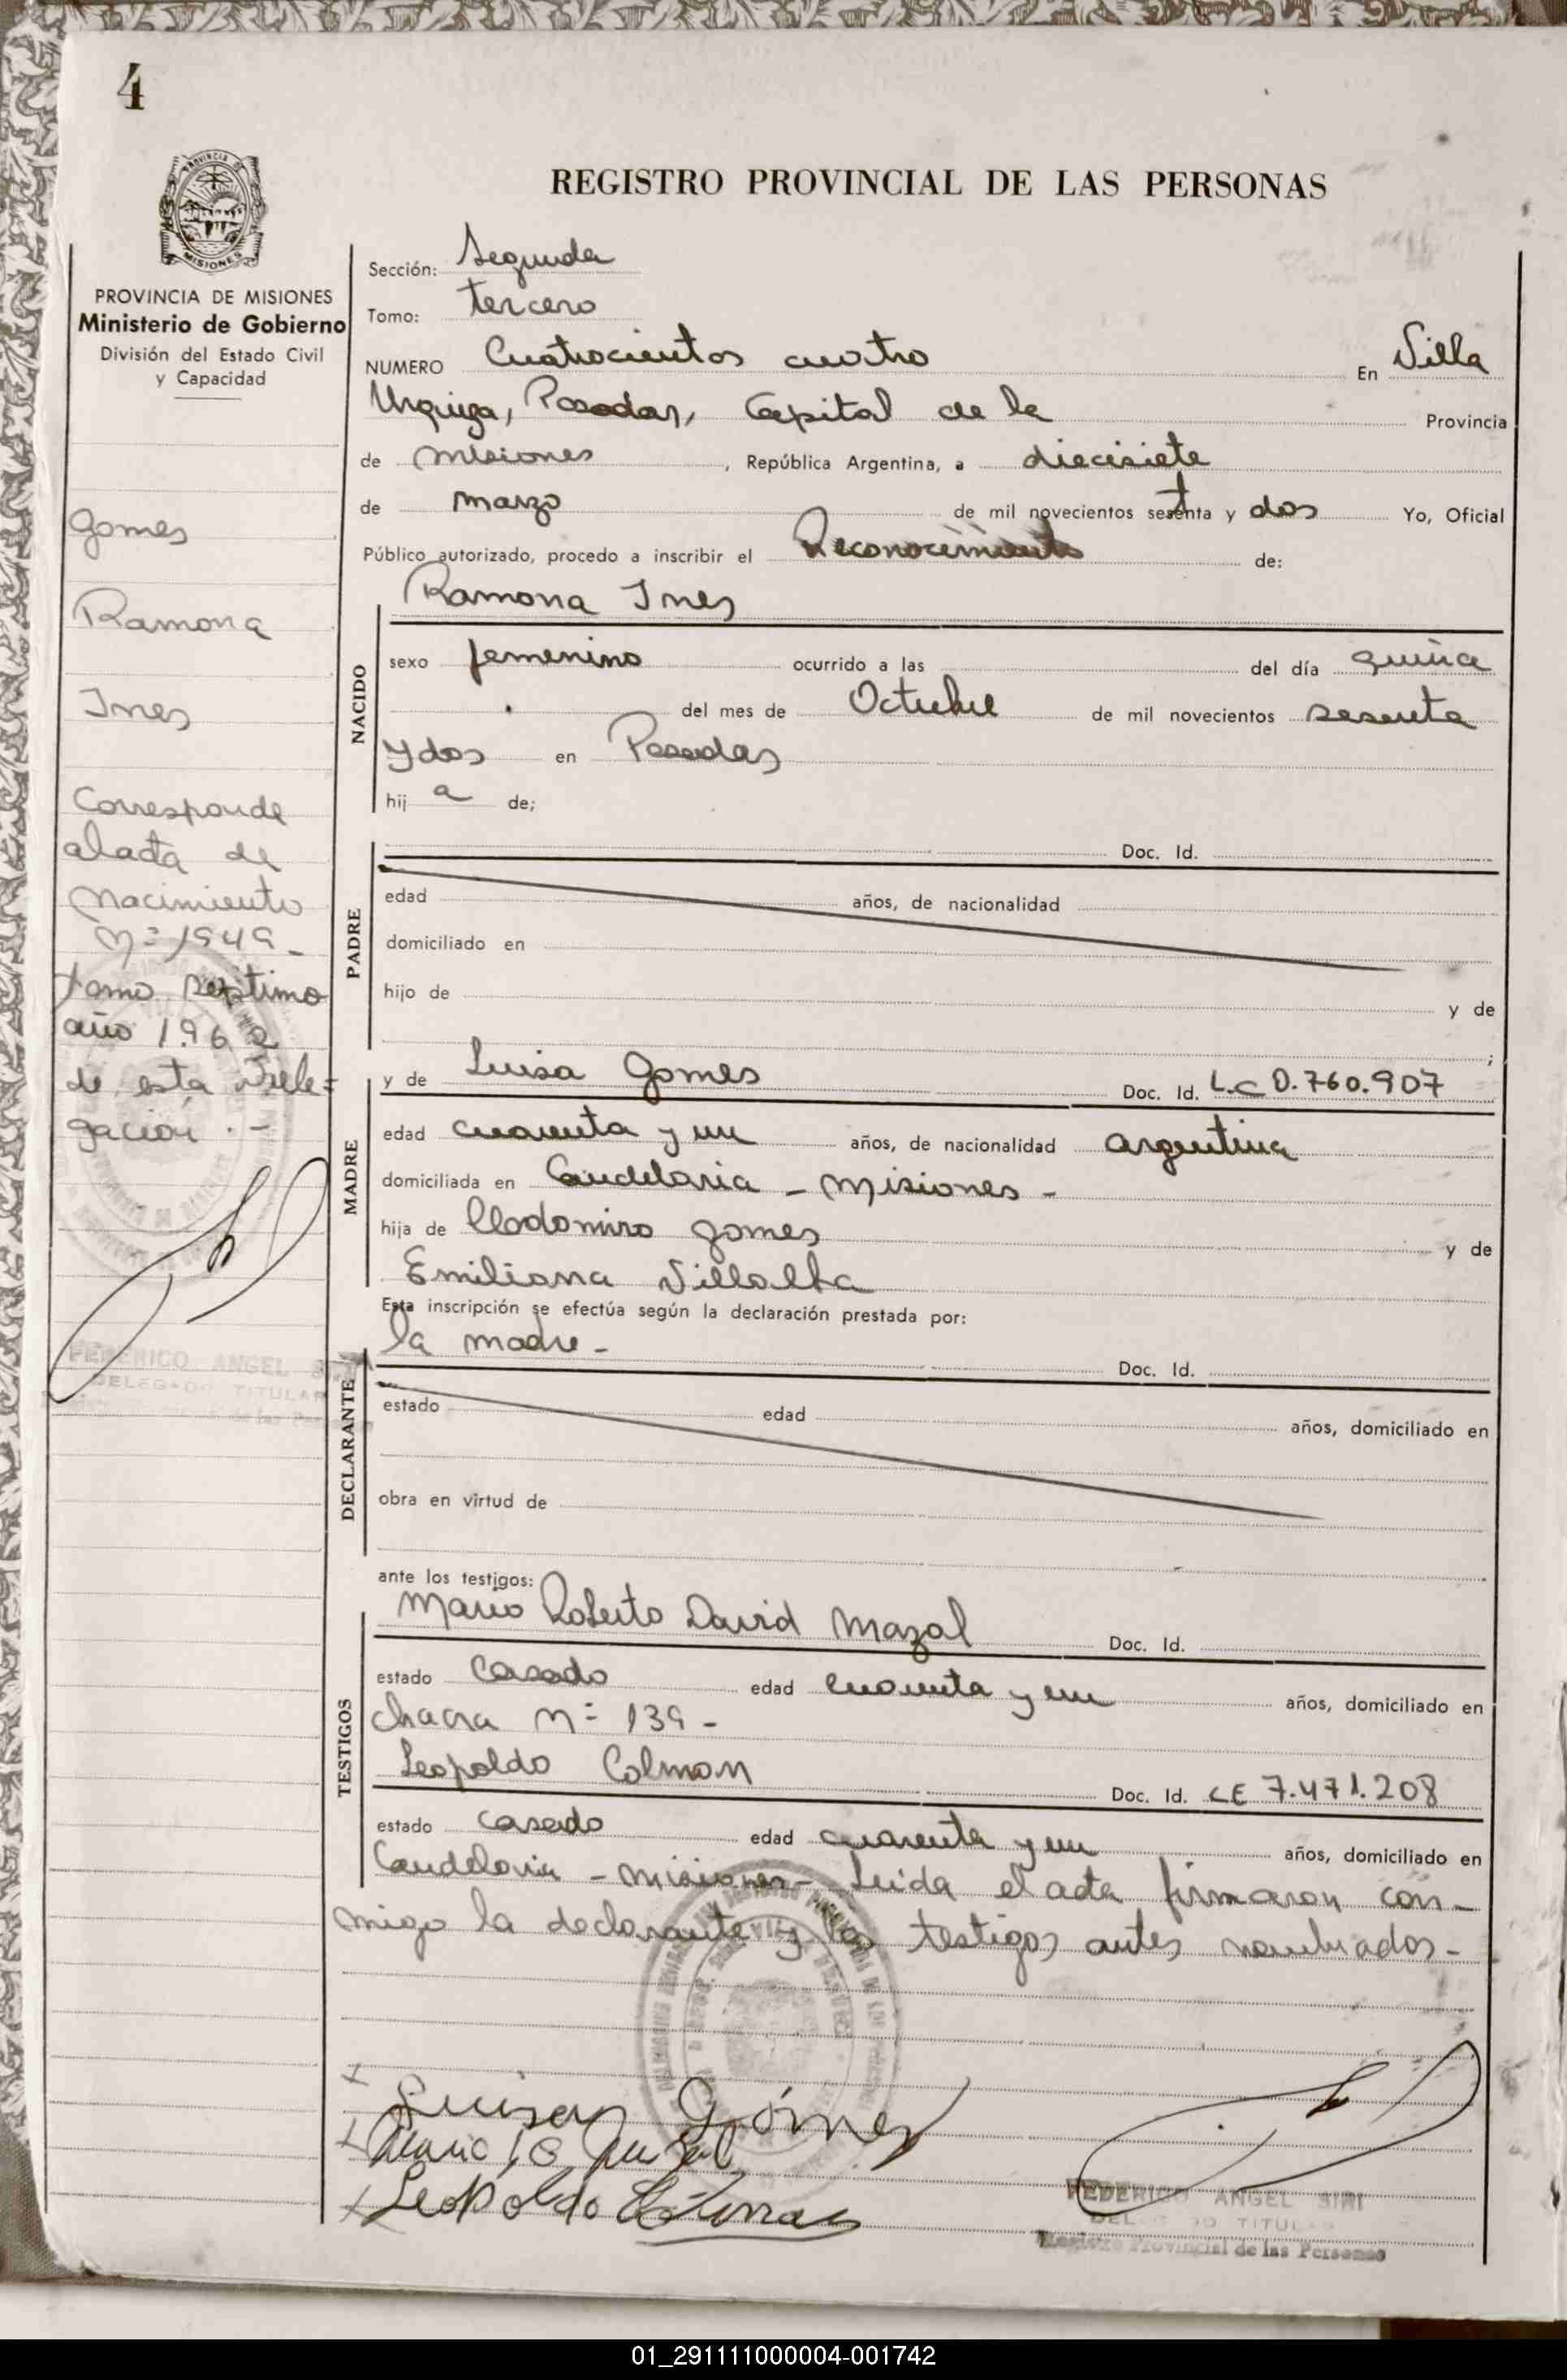 4
REGISTRO PROVINCIAL DE LAS PERSONAS
PROVINCIA DE MISIONES
Ministerio de Gobierno
División del Estado Civil
y Capacidad
Gomes
Ramona
Ines
Corresponde
al acta de
Nacimiento
Nº 1949-
tomo septimo
año 1.962
de esta Dele=
gación .-
FEDERICO ANGEL
DELEGADO TITULAR
Sección: Segunda
Tomo: tercero
NUMERO Cuatrocientos cuatro En Villa
Urquiza, Posadas, Capital de la Provincia
de Misiones , República Argentina, a diecisiete
de marzo de mil novecientos setenta y dos Yo, Oficial
Público autorizado, procedo a inscribir el Reconocimiento de:
Ramona Ines
NACIDO
sexo femenino ocurrido a las del día quince
del mes de Octubre de mil novecientos sesenta
y dos en Posadas
hij a de;
PADRE
Doc. Id.
edad años, de nacionalidad
domiciliado en
hijo de y de
;
MADRE
y de Luisa Gomes Doc. Id. L.C 0.760.907
edad cuarenta y un años, de nacionalidad argentina
domiciliada en Candelaria - Misiones -
hija de Clodomiro Gomes y de
Emiliana Villalba
Esta inscripción se efectúa según la declaración prestada por:
la madre -
DECLARANTE
Doc. Id.
estado edad años, domiciliado en
obra en virtud de
ante los testigos:
TESTIGOS
Mario Roberto David Mazal Doc. Id.
estado Casado edad cuarenta y un años, domiciliado en
chacra Nº 139 -
Leopoldo Colman Doc. Id. LE 7.471.208
estado casado edad cuarenta y un años, domiciliado en
Candelaria - Misiones - Leida el acta firmaron con-
migo la declarante y los testigos antes nombrados-
Luisa Gómez
Leopoldo Colman
FEDERICO ANGEL SIRI
DELEGADO TITULAR
Registro Provincial de las Personas
01_291111000004-001742